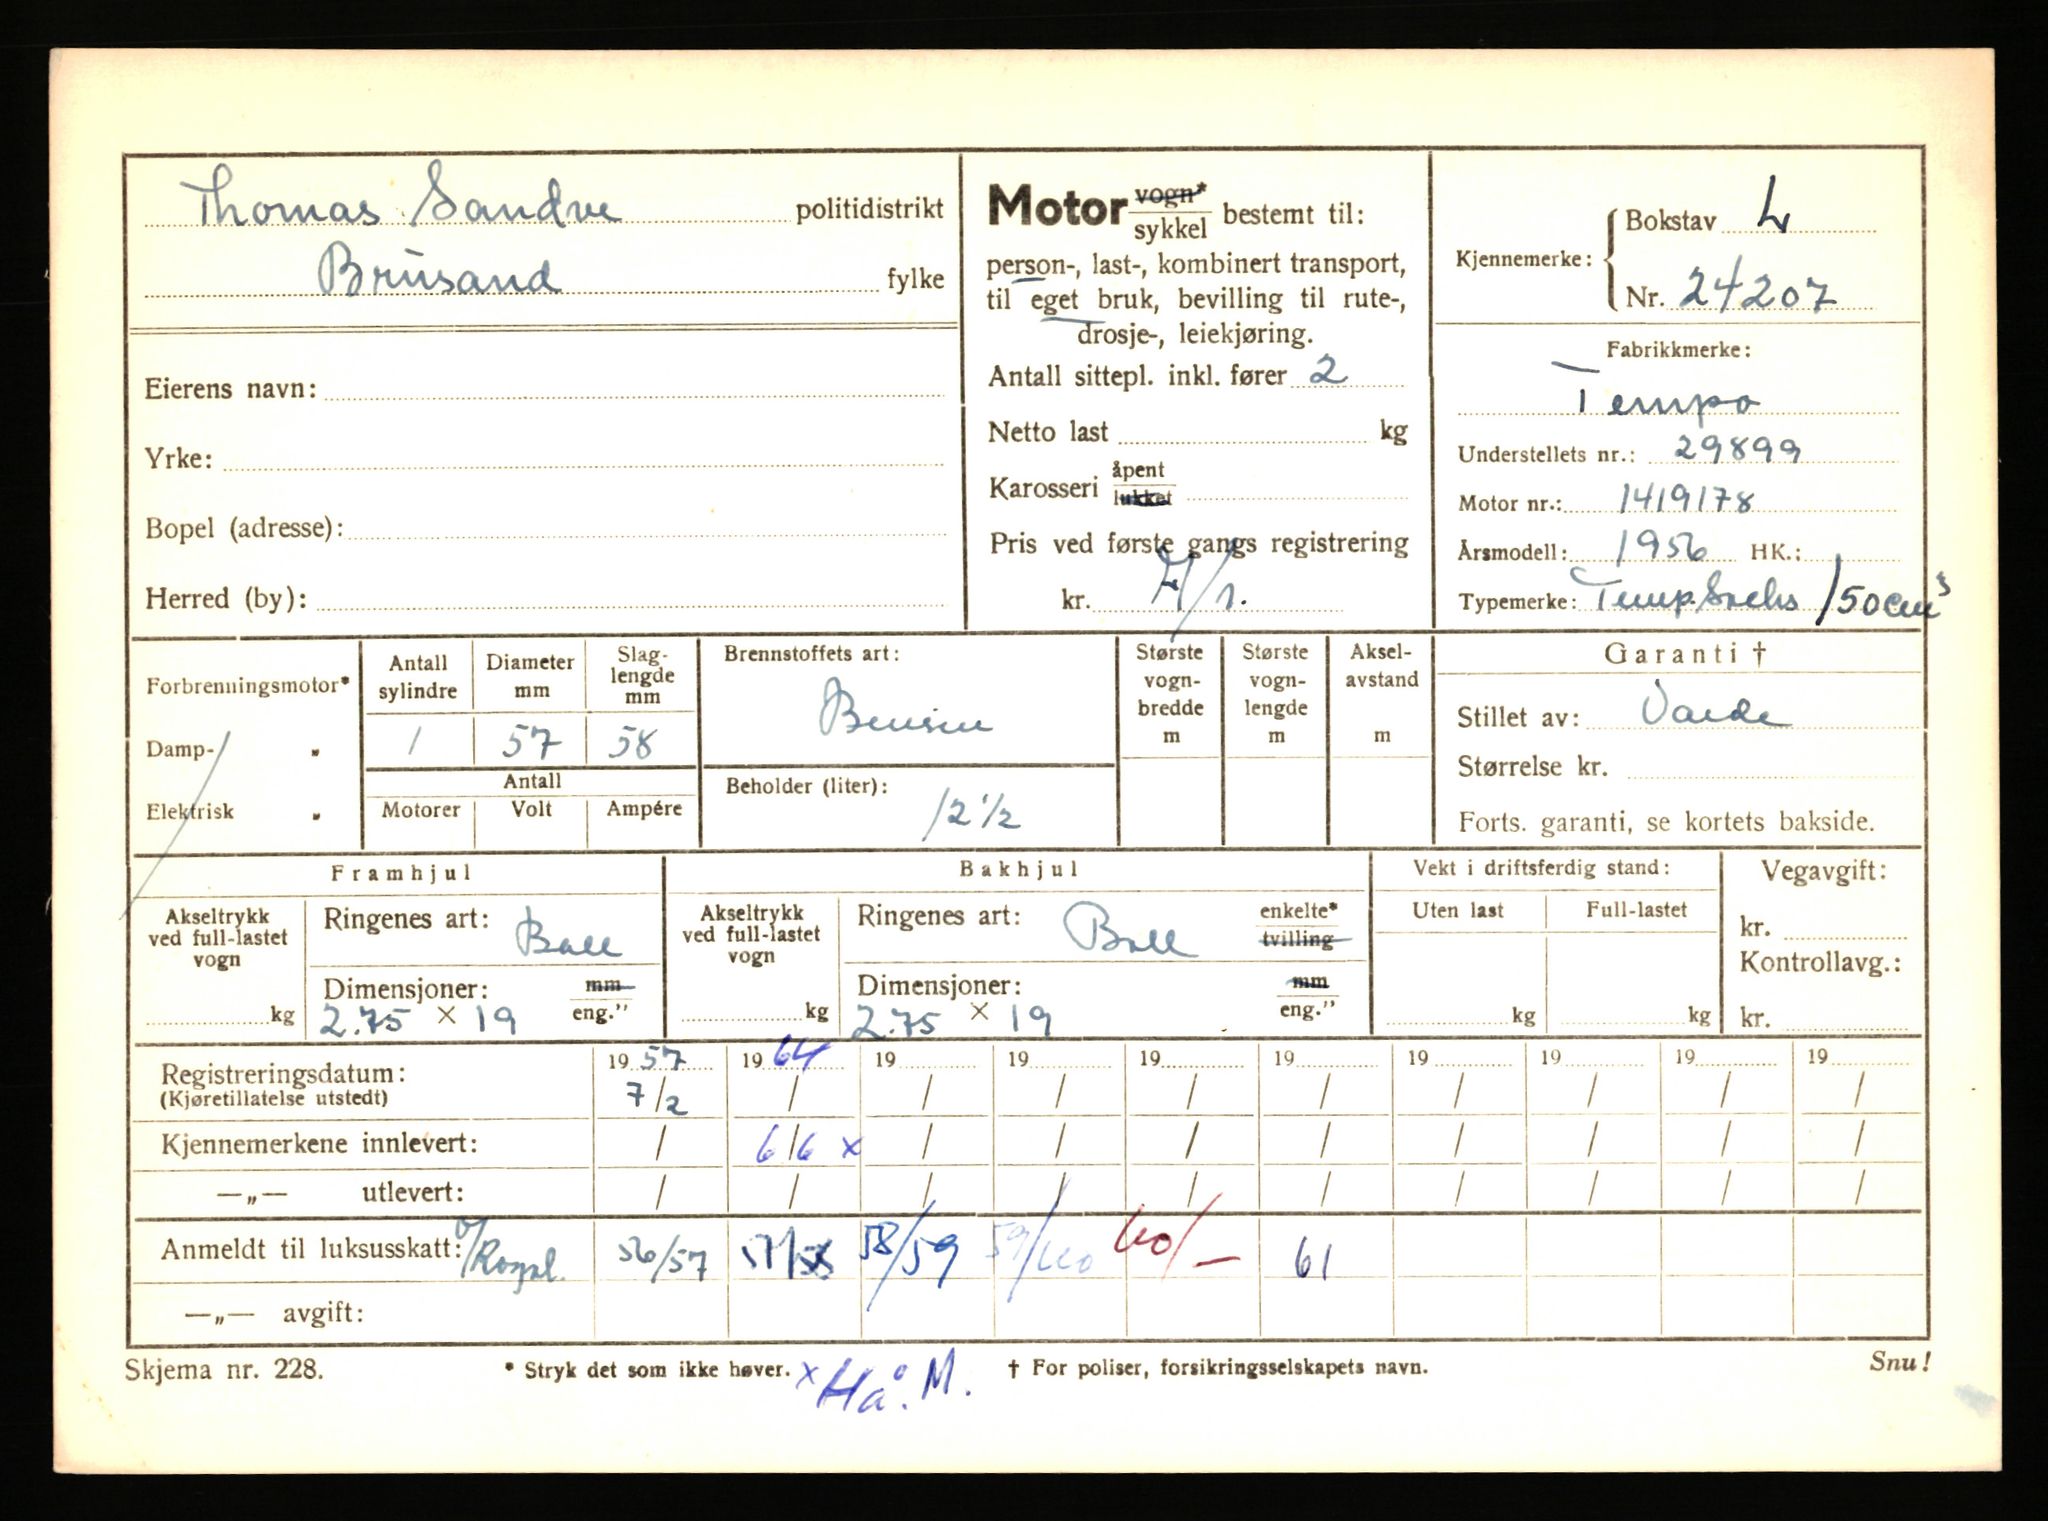 Thomas Sandve politidistrikt
Brusand fylke
Eierens navn:
Yrke:
Bopel (adresse):
Herred (by):
Motor vogn* / sykkel bestemt til:
person-, last-, kombinert transport,
til eget bruk, bevilling til rute-,
drosje-, leiekjøring.
Antall sittepl. inkl. fører 2
Netto last kg
Karosseri åpent / lukket
Pris ved første gangs registrering
kr.
Kjennemerke: Bokstav L
Nr. 24207
Fabrikkmerke:
Tempo
Understellets nr.: 29899
Motor nr.: 1419178
Årsmodell: 1956 HK.:
Typemerke: Temp. Sachs /50cm³
Forbrenningsmotor*
Damp- „
Elektrisk „
Antall sylindre 1
Diameter mm 57
Slag-lengde mm 58
Antall
Motorer Volt Ampére
Brennstoffets art:
Bensin
Beholder (liter):
12 1/2
Største vogn-bredde m
Største vogn-lengde m
Aksel-avstand m
Garanti †
Stillet av: Varde
Størrelse kr.
Forts. garanti, se kortets bakside.
Framhjul
Akseltrykk ved full-lastet vogn
kg
Ringenes art: Ball
Dimensjoner: mm / eng.”
2.75 × 19
Bakhjul
Akseltrykk ved full-lastet vogn
kg
Ringenes art: Ball enkelte* / tvilling
Dimensjoner: mm / eng.”
2.75 × 19
Vekt i driftsferdig stand:
Uten last Full-lastet
kg kg
Vegavgift:
kr.
Kontrollavg.:
kr.
19 57 19 64 19 19 19 19 19 19 19 19
Registreringsdatum: 7/2 / / / / / / / / /
(Kjøretillatelse utstedt)
Kjennemerkene innlevert: / 6/6 x / / / / / / / /
—„— utlevert: / / / / / / / / / /
Anmeldt til luksusskatt: 56/57 57/58 58/59 59/60 60/— 61
—„— avgift:
Skjema nr. 228. * Stryk det som ikke høver. x Hå. M. † For poliser, forsikringsselskapets navn. Snu!